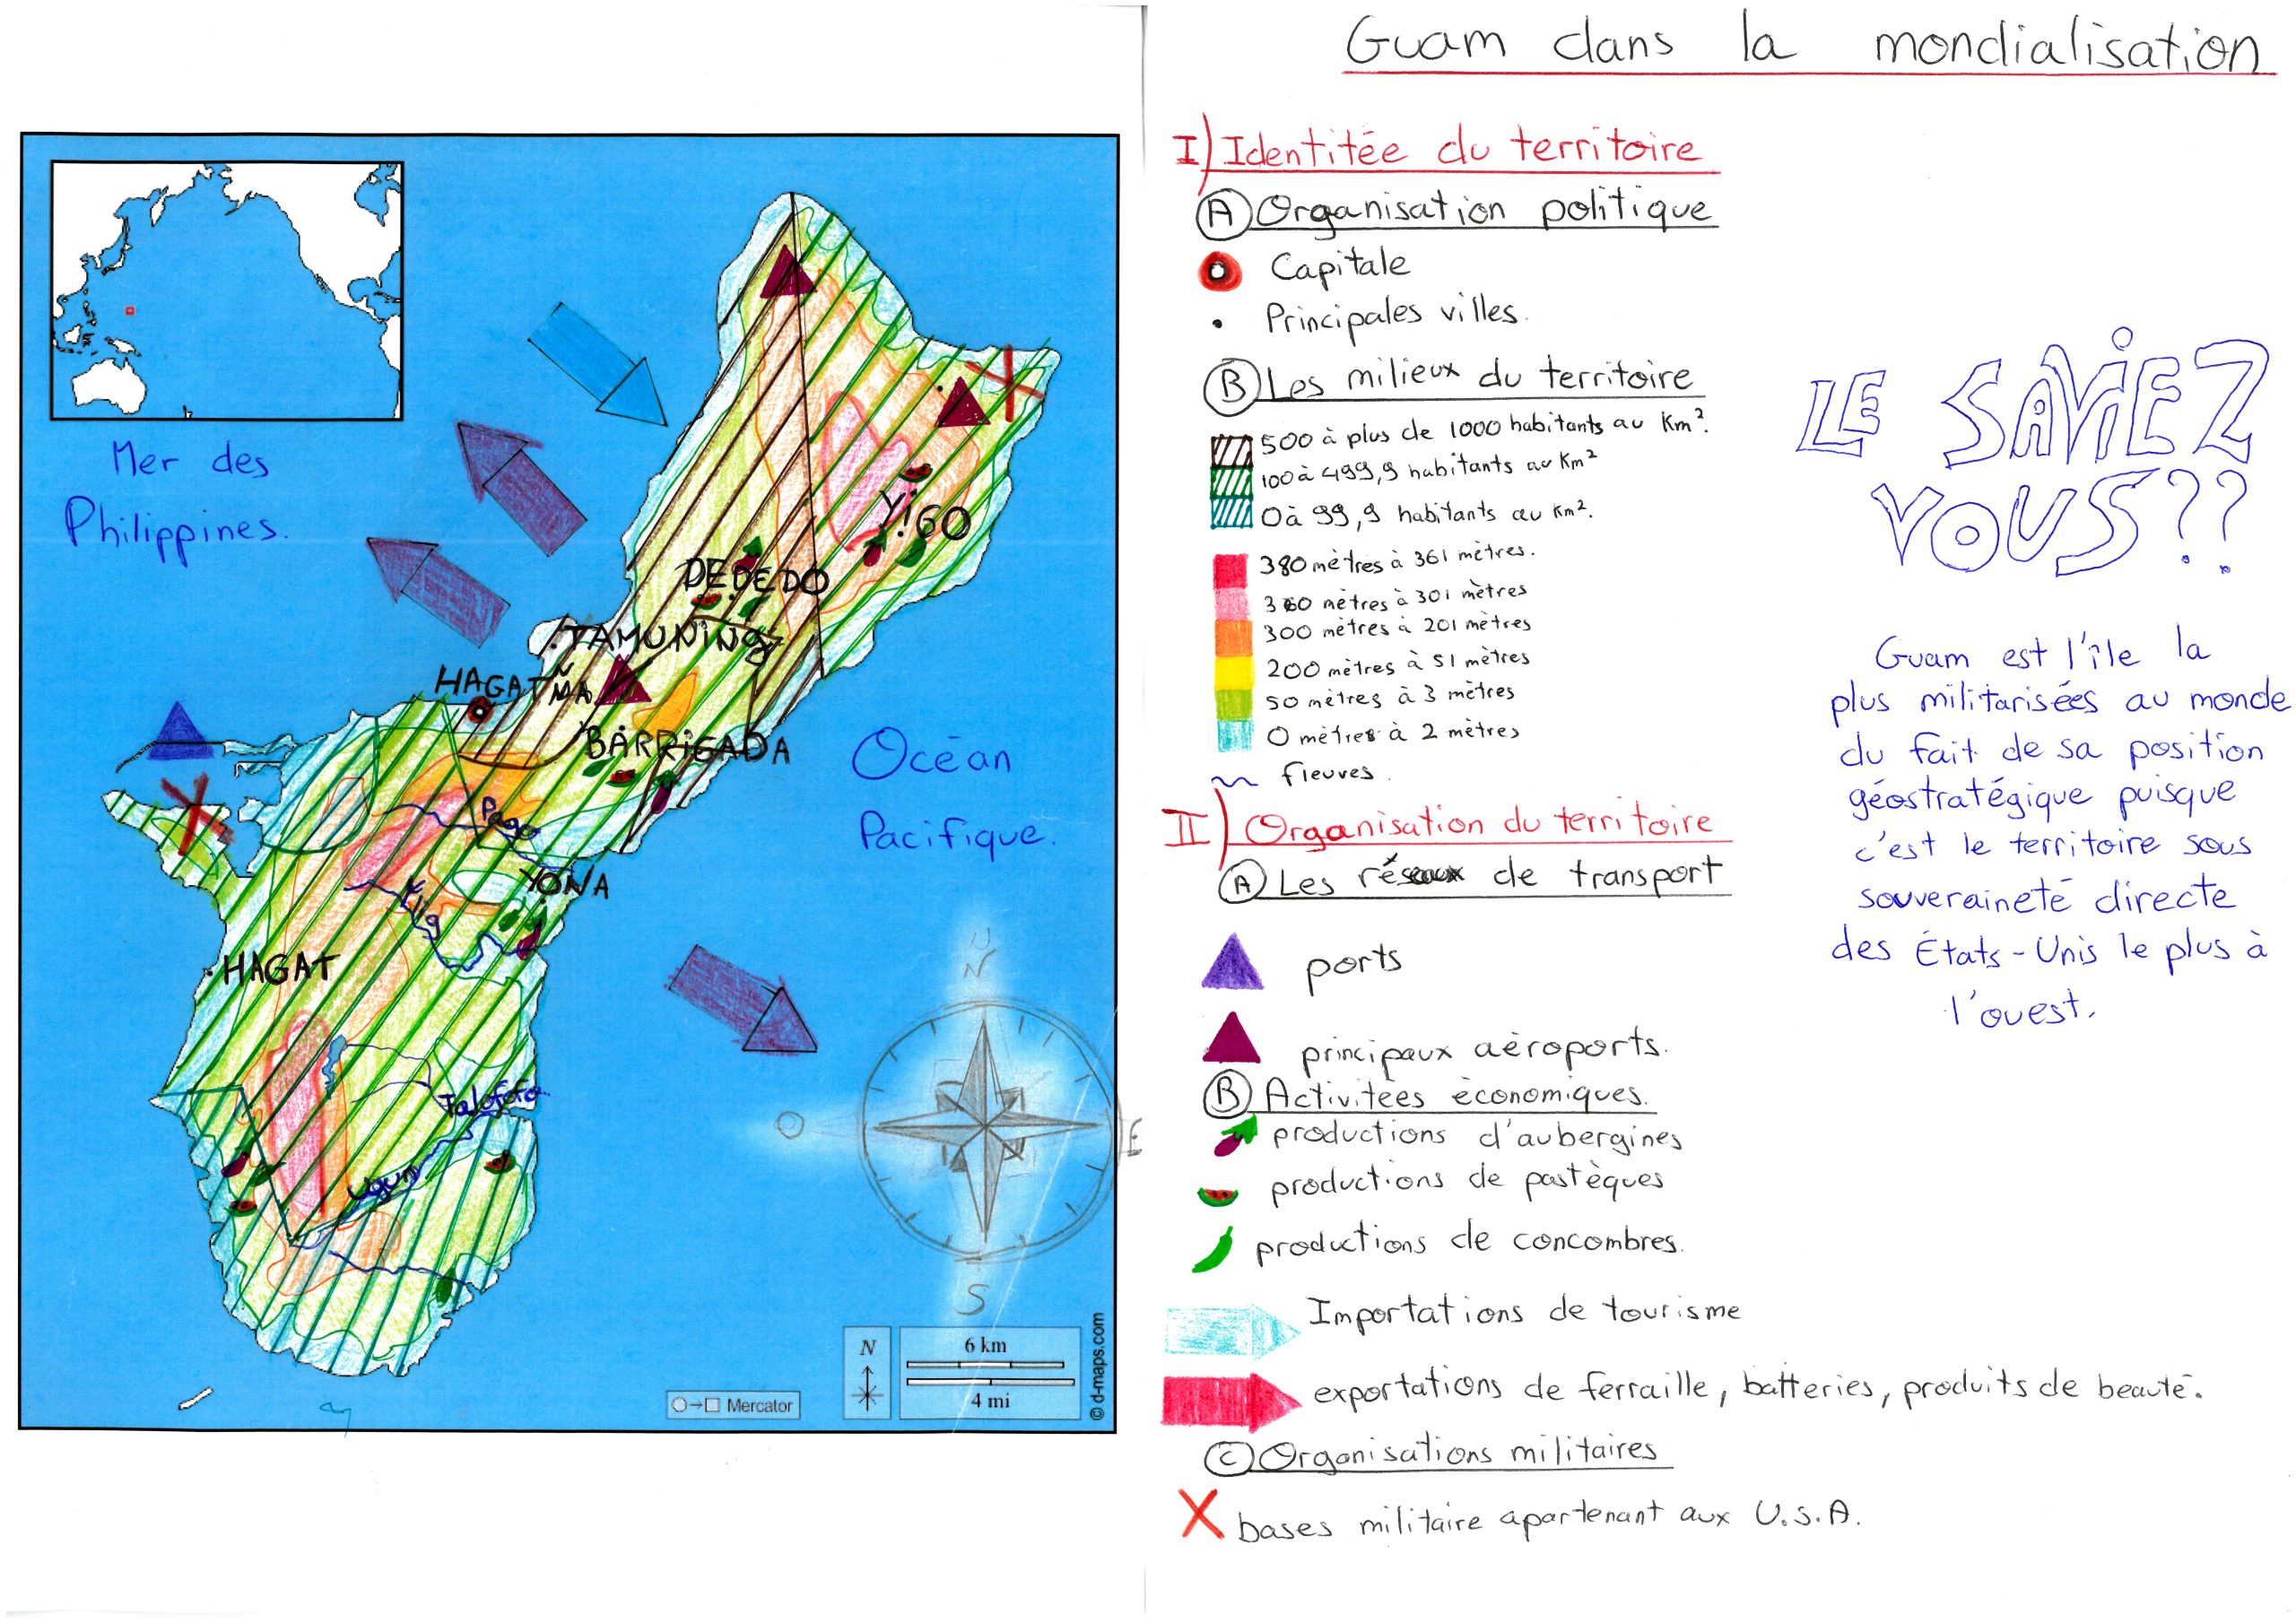 Guam dans la mondialisation
Mer des
Philippines.
YiGO
DEDEDO
TAMUNiNg
HAGATÑA
BARRiGADA
Océan
Pacifique.
Pago
YONA
Ylig
HAGAT
Talofofo
Ugum
N
E
S
O
N
6 km
4 mi
Mercator
© d-maps.com
I) Identitée du territoire
A Organisation politique
Capitale
Principales villes.
B Les milieux du territoire
500 à plus de 1000 habitants au Km².
100 à 499,9 habitants au Km²
0 à 99,9 habitants au Km².
380 mètres à 361 mètres.
360 mètres à 301 mètres
300 mètres à 201 mètres
200 mètres à 51 mètres
50 mètres à 3 mètres
0 mètres à 2 mètres
fleuves.
II) Organisation du territoire
A Les réseaux de transport
ports
principaux aéroports.
B Activitées économiques.
productions d'aubergines
productions de pastèques
productions de concombres.
Importations de tourisme
exportations de ferraille, batteries, produits de beauté.
C Organisations militaires
bases militaire apartenant aux U.S.A.
LE SAViEZ
VOUS??
Guam est l'île la
plus militarisées au monde
du fait de sa position
géostratégique puisque
c'est le territoire sous
souveraineté directe
des États-Unis le plus à
l'ouest.